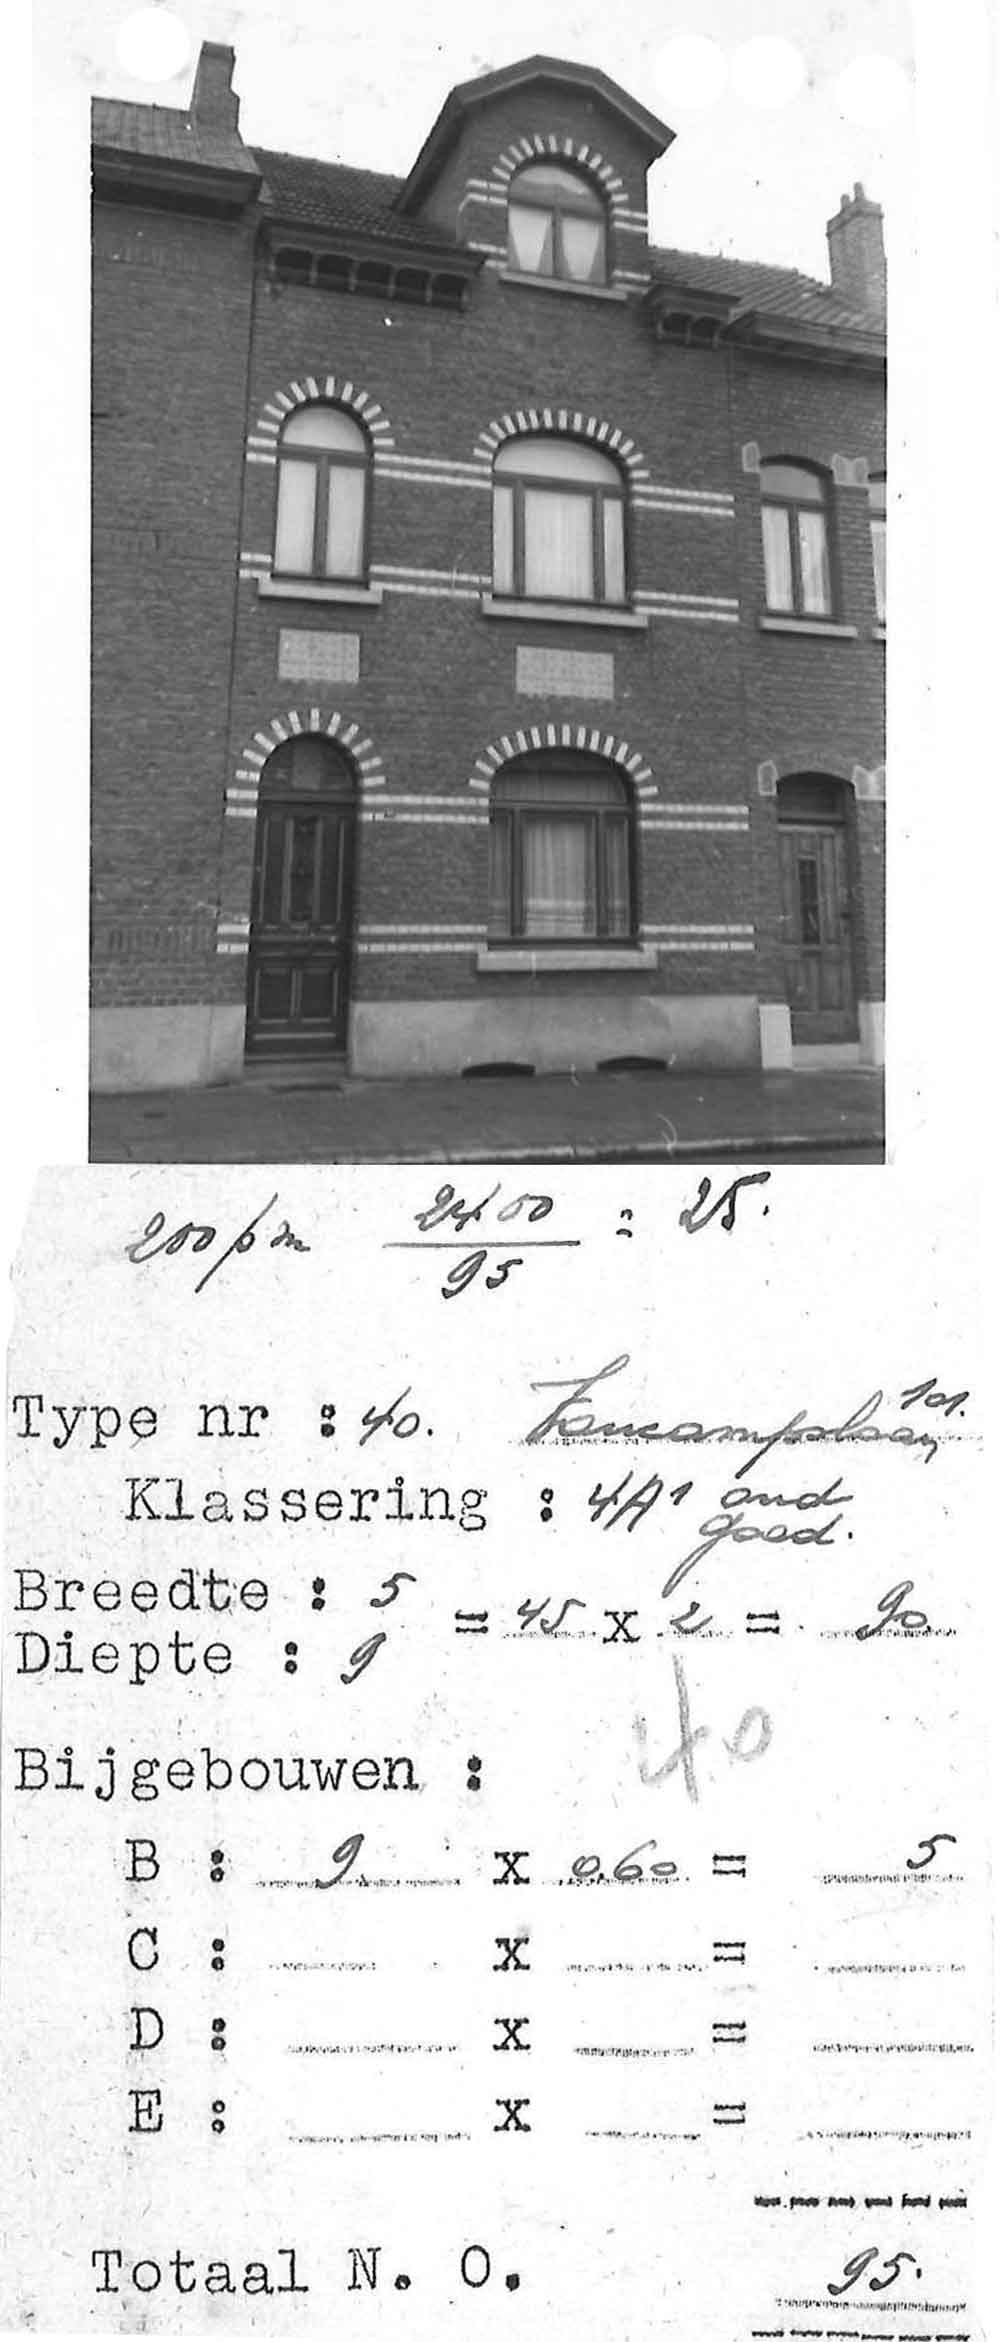 200 p m 2400 = 25.
95
101.
Type nr : 40. Vancamplaan
Klassering : 4A1 oud
goed.
Breedte : 5
= 45 x 2 = 90
Diepte : 9
40
Bijgebouwen :
B : 9 x 0.60 = 5
C : x =
D : x =
E : x =
Totaal N. O. 95.